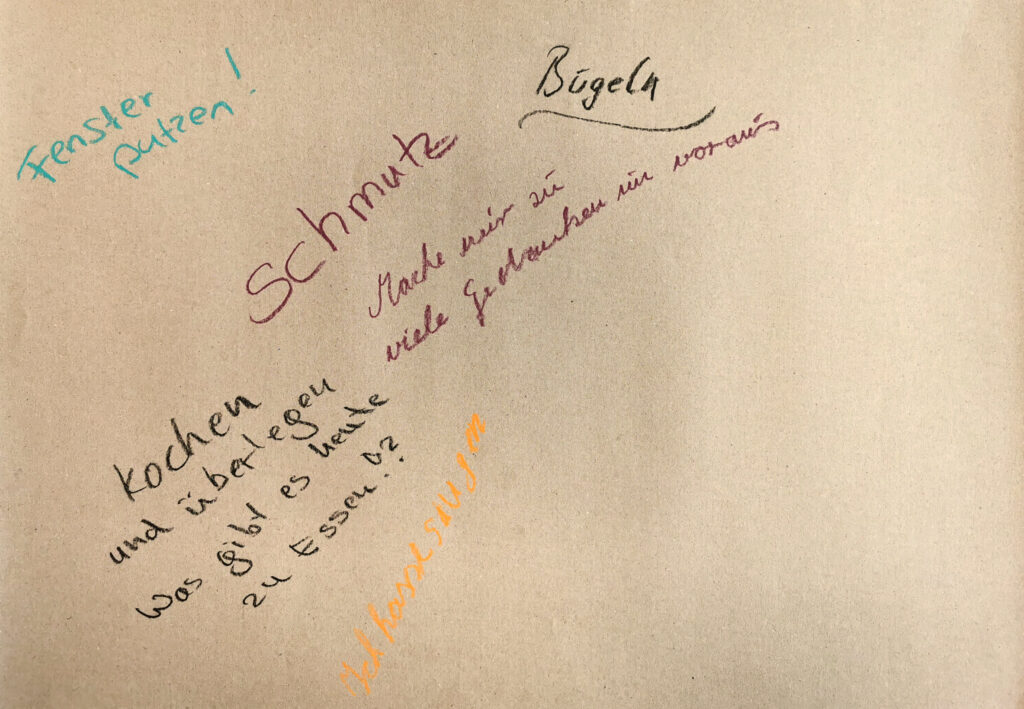 Fenster
putzen!
Bügeln
Schmutz
Mache mir zu
viele Gedanken im voraus
kochen
und überlegen
Was gibt es heute
zu Essen!?
Ich hasse